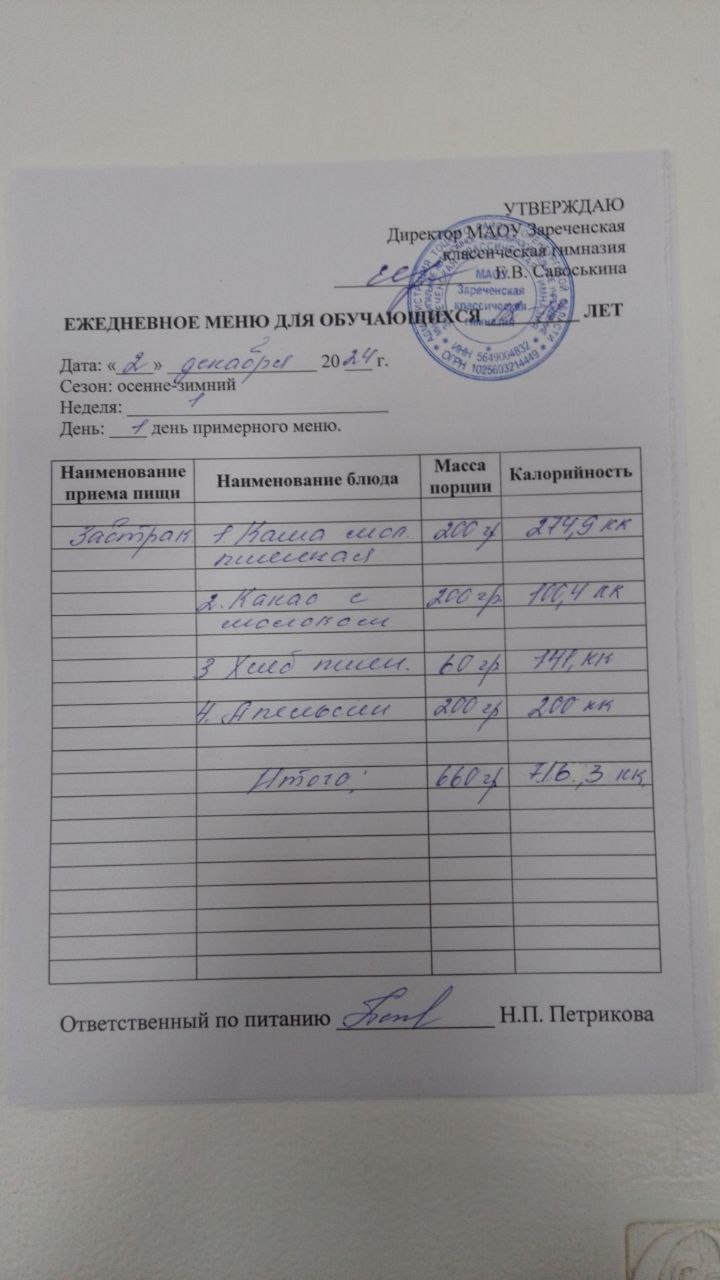 УТВЕРЖДАЮ
Директор МАОУ Зареченская
классическая гимназия
Е.В. Савоськина
МАОУ
Зареченская
классическая
гимназия
* ИНН 5649004832 *
* ОГРН 1025603214449 *
ЕЖЕДНЕВНОЕ МЕНЮ ДЛЯ ОБУЧАЮЩИХСЯ ЛЕТ
Дата: « 2 » декабря 2024 г.
Сезон: осенне-зимний
Неделя: 1
День: 1 день примерного меню.
Наименование приема пищи Наименование блюда Масса порции Калорийность
Завтрак 1 Каша мол. 200 гр 274,9 кк
пшенная
2. Какао с 200 гр 100,4 кк
молоком
3 Хлеб пшен. 60 гр 141, кк
4. Апельсин 200 гр 200 кк
Итого: 660 гр 716,3 кк
Ответственный по питанию Н.П. Петрикова